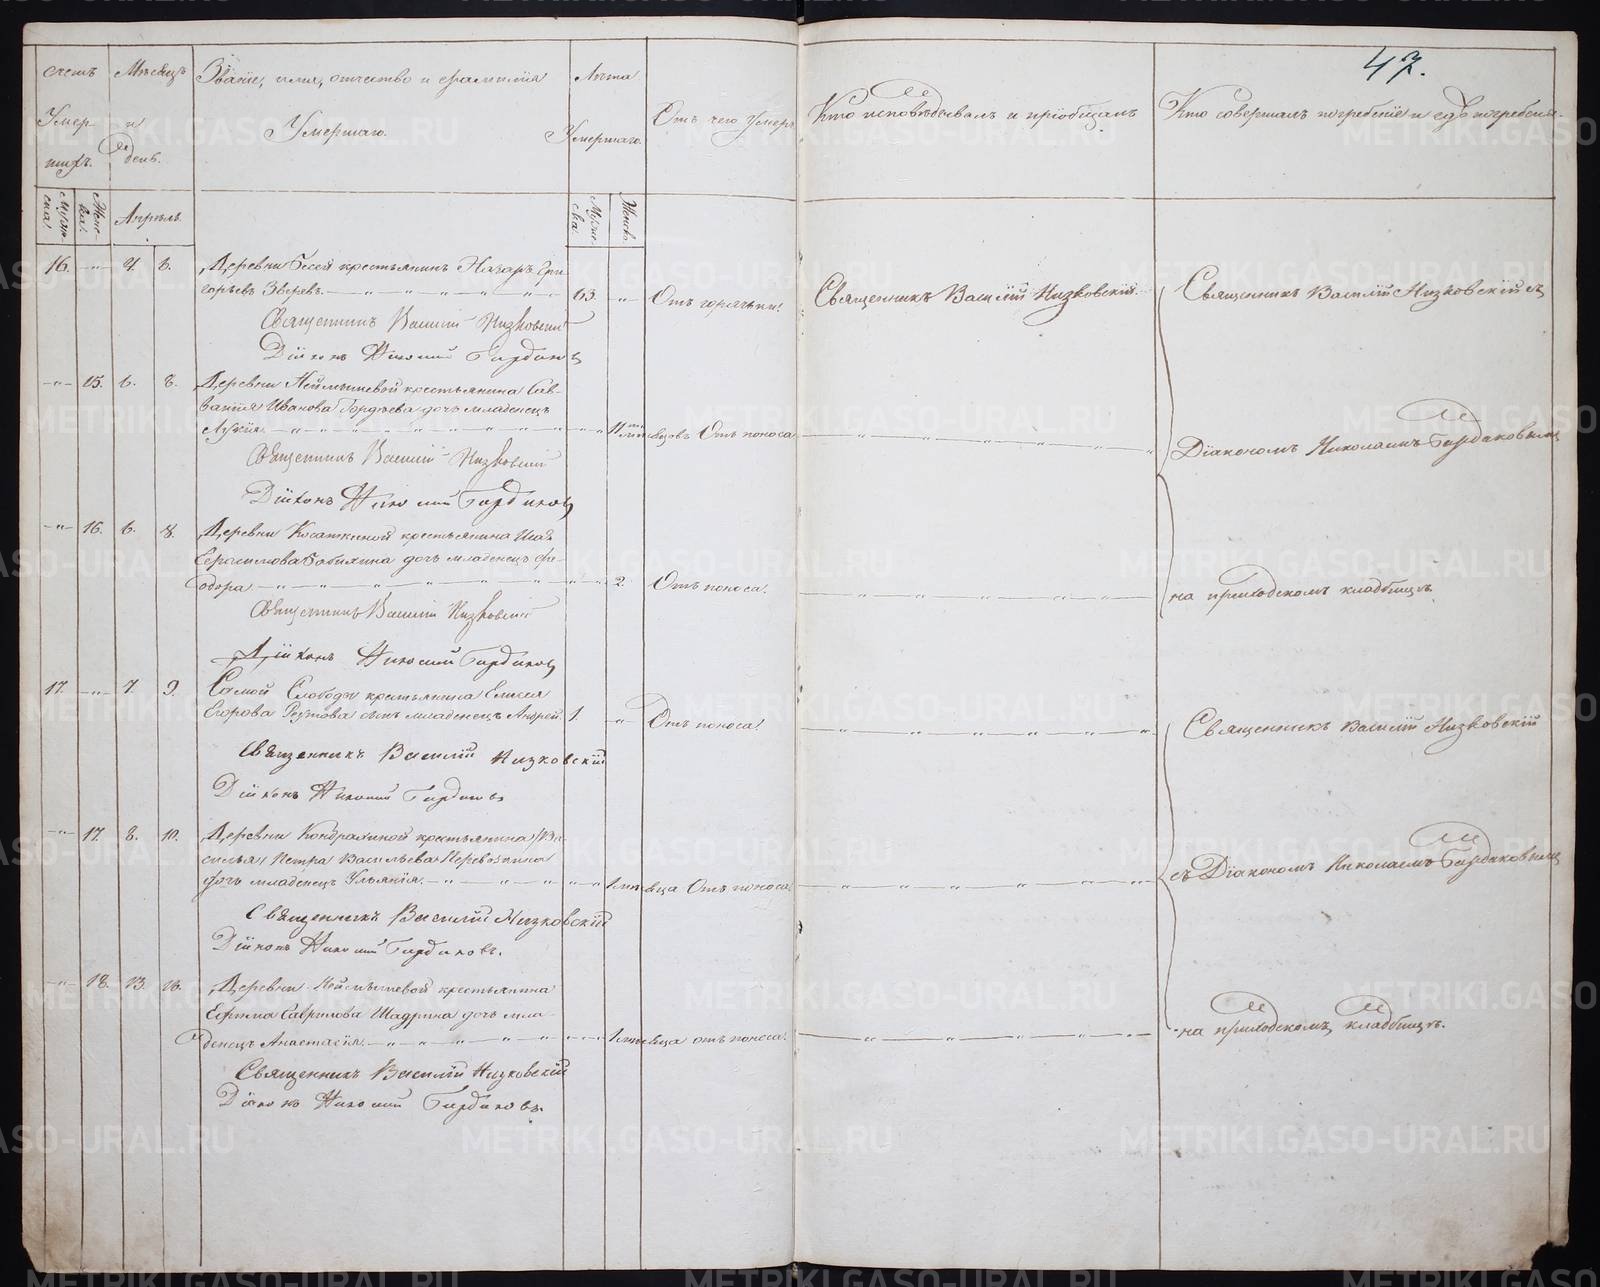 47.
Счетъ Умершихъ.
Мѣсяцъ и день.
Званіе, имя, отчество и фамилія
Умершаго.
Лѣта
Умершаго.
Отъ чего Умеръ
Кто исповѣдывалъ и пріобщалъ
Кто совершалъ погребеніе и гдѣ погребены.
Мужеска.
Женска.
Апрѣль.
Мужеска.
Женска
16. — " — 4. 6. Деревни крестьянинъ Назаръ Гри-
горьевъ Зверевъ. 63. " Отъ горячки. Священникъ Василій Низковскій. Священникъ Василій Низковскій съ
Священникъ Василій Низковскій
Діаконъ Николай
— " — 15. 6. 8. Деревни Неймышевой крестьянина Сав-
ватія Иванова Гордѣева дочь младенецъ
11 мѣсяцовъ Отъ поноса
Діакономъ Николаемъ
Священникъ Василій Низковскій
Діаконъ Николай
— " — 16. 6. 8. Деревни Косаткиной крестьянина
Герасимова дочь младенецъ Фе-
одора. 2. Отъ поноса. на приходскомъ кладбищѣ.
Священникъ Василій Низковскій
Діаконъ Николай
17. — " — 7. 9. Самой Слободы крестьянина Елисея
Егорова сынъ младенецъ Андрей. 1. " Отъ поноса. Священникъ Василій Низковскій
Священникъ Василій Низковскій
Діаконъ Николай
— " — 17. 8. 10. Деревни крестьянина /Ва-
силья/ Петра Васильева Перевозкина
дочь младенецъ Ульянія. 1 мѣсяца Отъ поноса. съ Діакономъ Николаемъ
Священникъ Василій Низковскій
Діаконъ Николай
— " — 18. 13. Деревни Неймышевой крестьянина
Ефима Гаврилова Шадрина дочь мла-
денецъ Анастасія. 1 мѣсяца отъ поноса. на приходскомъ кладбищѣ.
Священникъ Василій Низковскій
Діаконъ Николай
METRIKI.GASO-URAL.RU